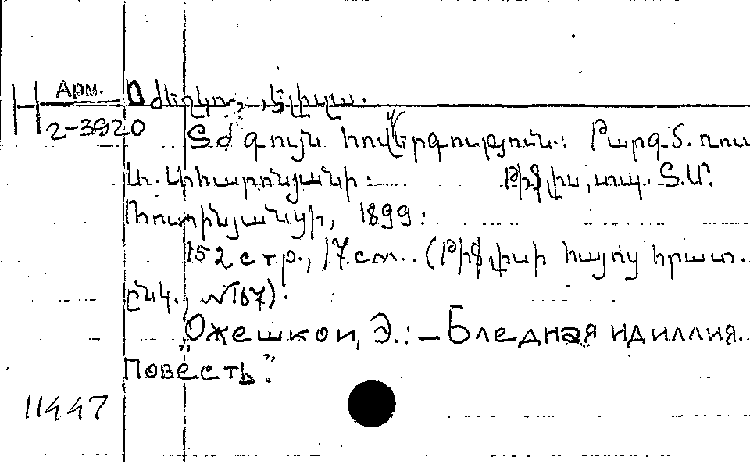 Арм.
H 2-3920
Օժեշկո, Էլիզա.
Տժգույն հովերգություն: Թարգմ. ռուս
Թիֆլիս, տպ. Տ.Մ.
Ռոտինյանցի, 1899:
152 стр., 17 см. (Թիֆլիսի հայոց հրատ.
ընկ., №167).
"Ожешкои, Э.: – Бледная идиллия.
Повесть".
11447